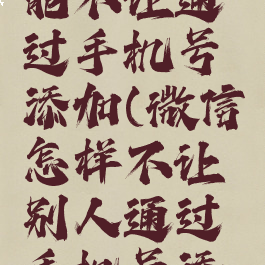 能不让通
过手机号
添加(微信
怎样不让
别人通过
手机号添